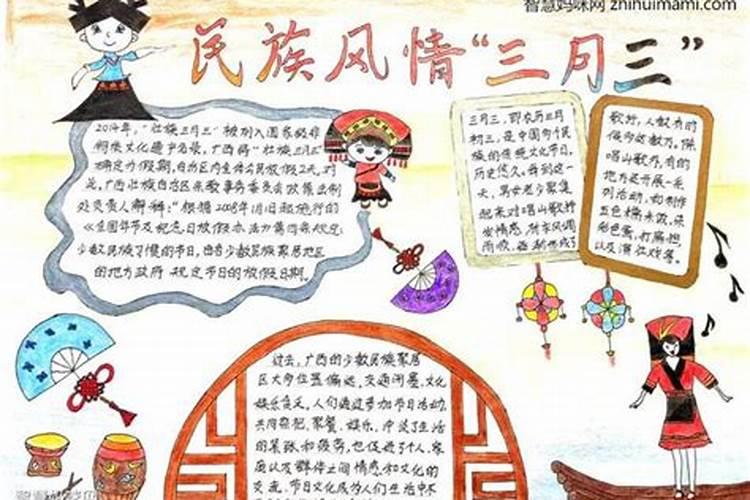 智慧妈咪网 zhihuimami.com
民族风情“三月三”
2014年，“壮族三月三”被列入国家级非
物质文化遗产名录，广西将“壮族三月三”
确定为假期，自治区内全体公民放假2天。对
此，广西壮族自治区民族事务委员会政策法制
处负责人解释：“根据2008年1月1日起施行的
《全国年节及纪念日放假办法》第四条规定：
少数民族习惯的节日，由各少数民族聚居地区
的地方政府 规定节日的放假日期。
三月三，即农历三月
初三，是中国多个民
族的传统文化节日，
历史悠久。每到这一
天，男女老少聚集
起来对唱山歌抒
发情感，
歌外，人数多的
唱山歌外，有的
地方还开展一系
列活动，如制作
五色糯米饭、染
彩色蛋、打扁担
以及演壮戏等。
过去，广西的少数民族聚居
区大多位置偏远、交通闭塞、文化
娱乐贫乏。人们通过参加节日活动，
共同祭祀、聚餐、娱乐，冲淡了生活
的紧张和疲劳，也促进了个人、家
庭以及群体之间情感和文化的
交流。节日文化成为人们生活中不
智慧妈咪网